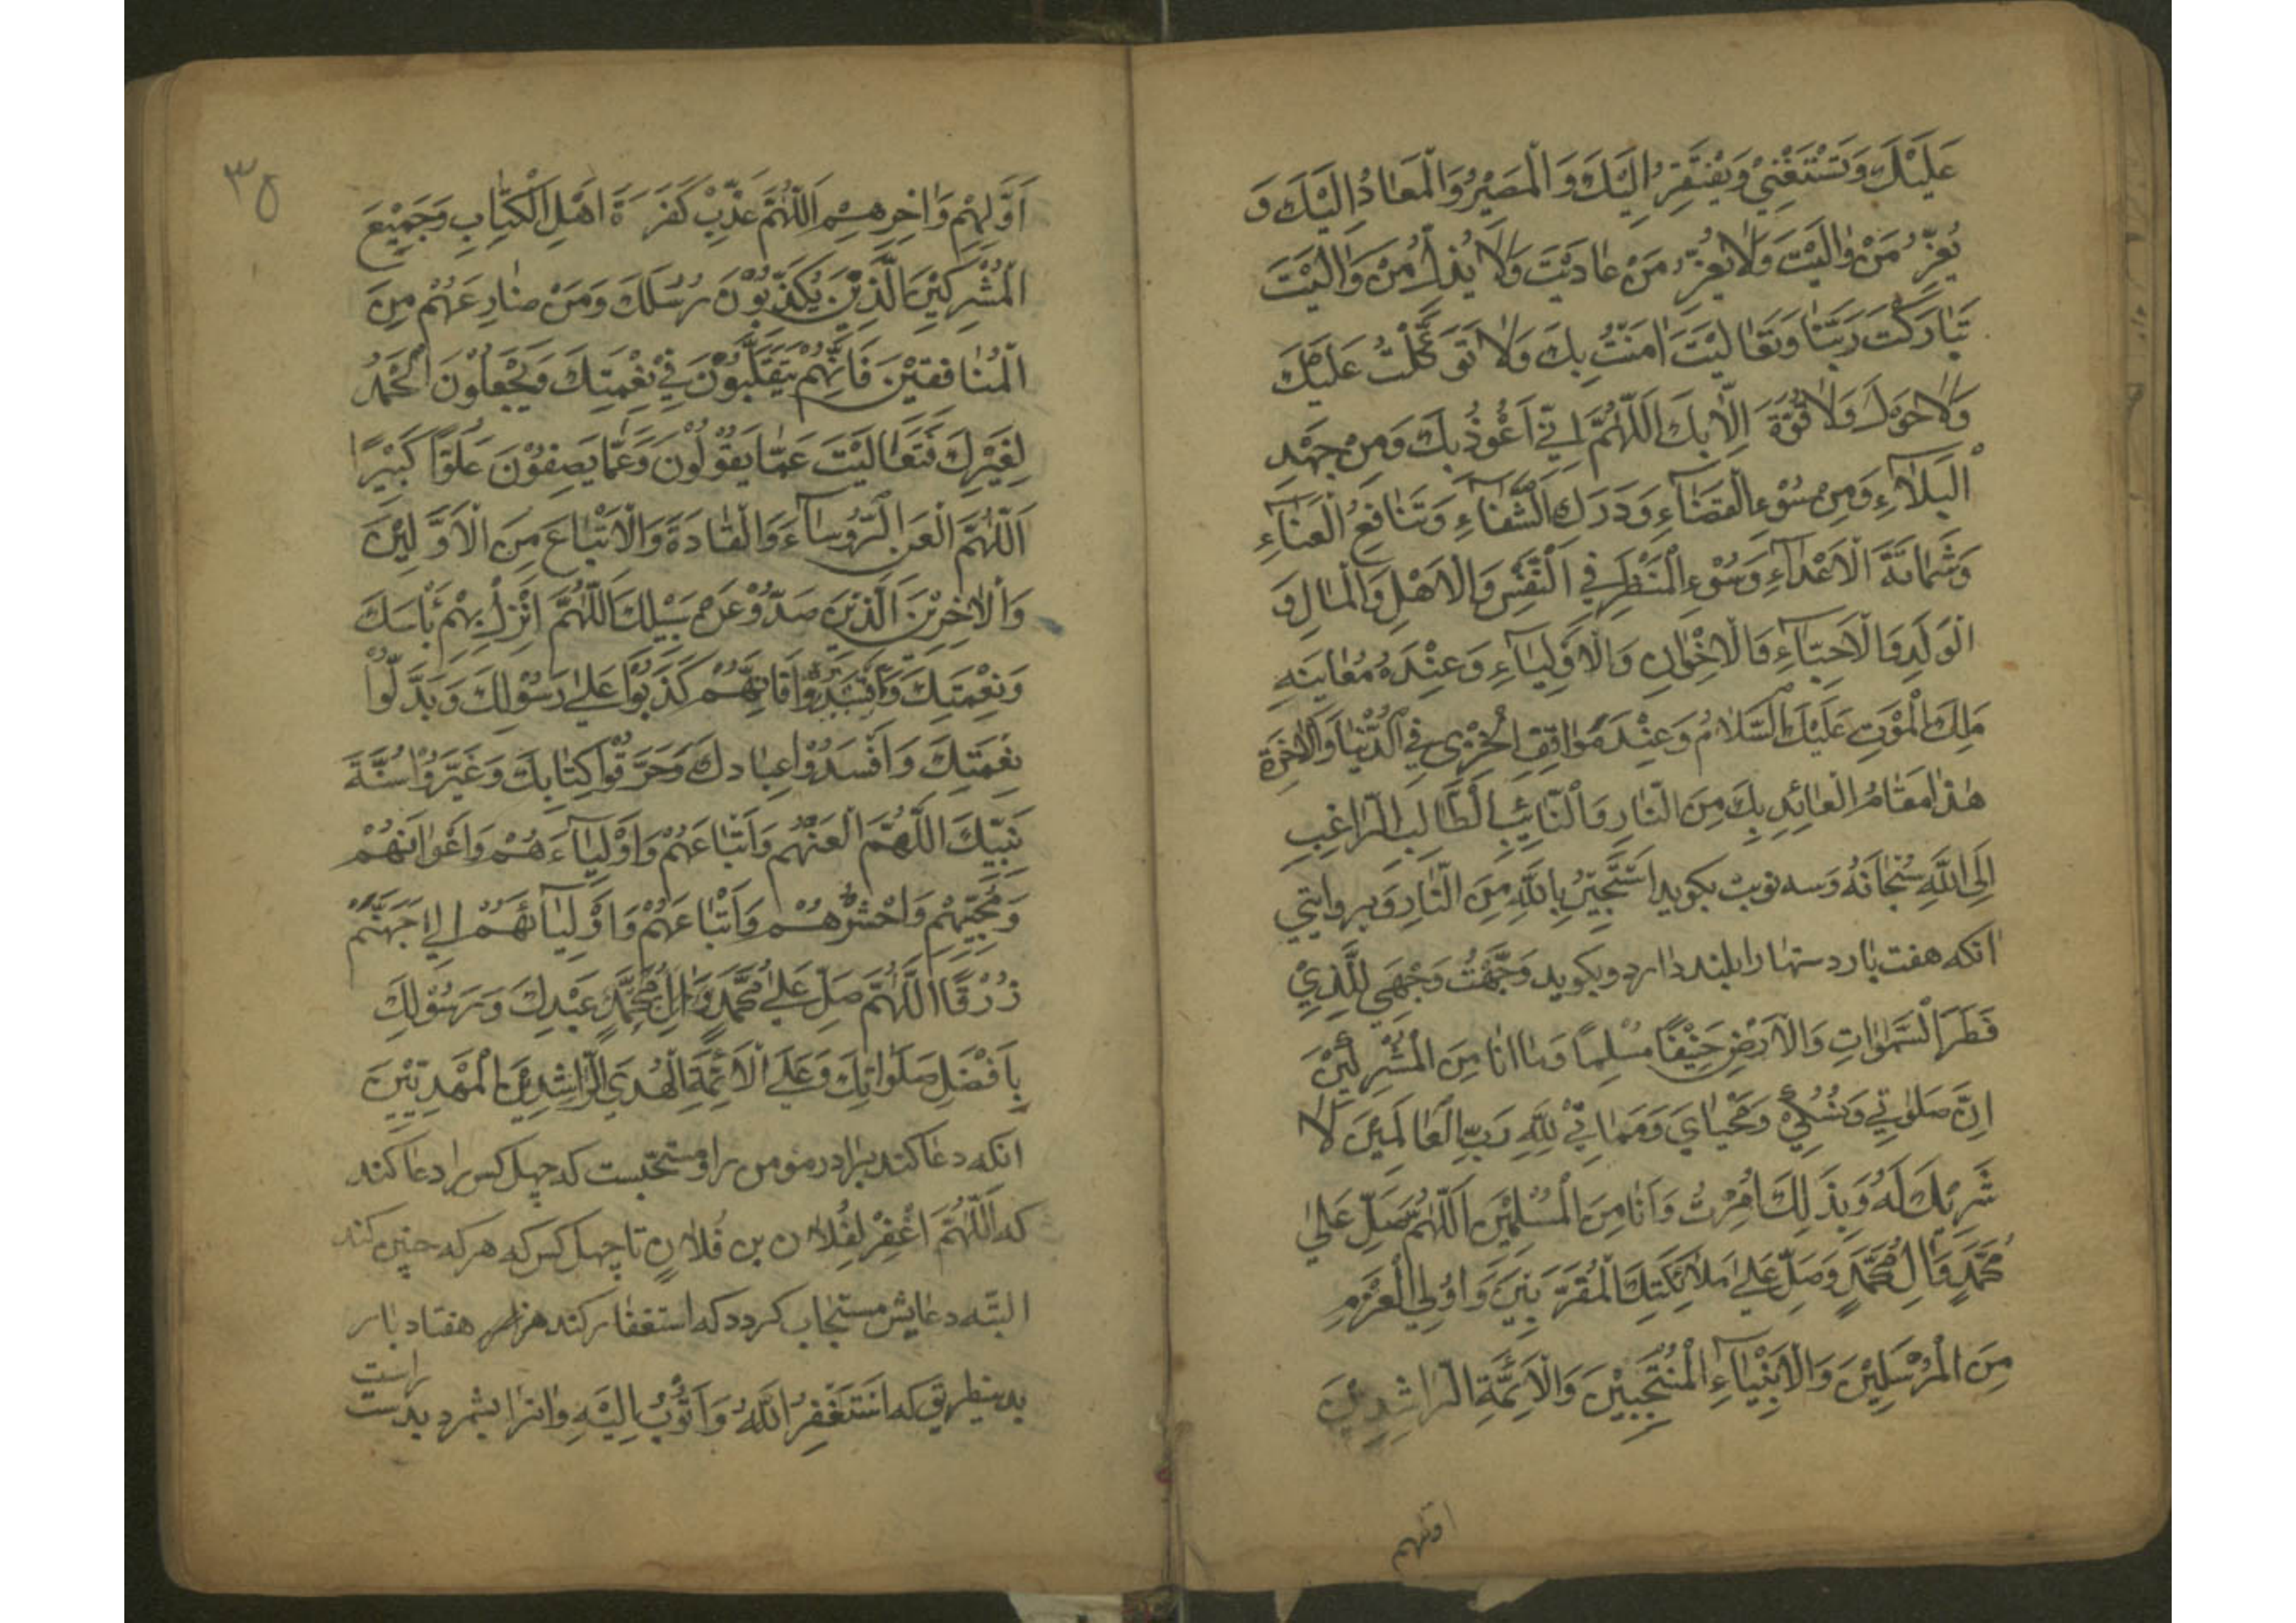 عَلَيْكَ وَتَسْتَغْنِيْ وَيَفْتَقِرُ اِلَيْكَ وَالْمَصِيْرُ وَالْمَعَادُ اِلَيْكَ وَ
يُعِزُّ مَنْ وٰالَيْتَ وَلَا يَعِزُّ مَنْ عٰادَيْتَ وَلَا يُذِلُّ مَنْ وَالَيْتَ
تَبٰارَكْتَ رَبَّنٰا وَتَعٰالَيْتَ اٰمَنْتُ بِكَ وَلَا تَوَكَّلْتُ عَلَيْكَ
وَلَا حَوْلَ وَلَا قُوَّةَ اِلّٰا بِكَ اَللّٰهُمَّ اِنّيْ اَعُوْذُ بِكَ وَمِنْ جَهْدِ
الْبَلَآءِ وَمِنْ سُوْءِ الْقَضَآءِ وَدَرَكِ الشَّقٰاءِ وَتَنَافِعُ الْعَنَآءِ
وَشَمٰاتَةَ الْاَعْدَآءِ وَسُوْءِ الْمَنْظَرِ فِي النَّفْسِ وَالْاَهْلِ وَالْمٰالِ وَ
الْوَلَدِ وَالْاَحِبَّآءِ وَالْاِخْوٰانِ وَالْاَوْلِيَآءِ وَعِنْدَهُ مُعٰايَنَهِ
مَلِكَ الْمَوْتِ عَلَيْكَ السَّلَامُ وَعِنْدَ مَوٰاقِفِ الْخِزْيِ فِي الدُّنْيٰا وَالْاٰخِرَةِ
هٰذٰا مَقَامُ الْعٰائِذِ بِكَ مِنَ النّٰارِ وَالتّٰائِبِ الطَّالِبِ الرّٰاغِبِ
اِلَى اللّٰهِ سُبْحَانَهُ وَسه نوبت بكويد اَسْتَجِيْرُ بِاللّٰهِ مِنَ النّٰارِ وَبروايتي
انكه هفت بار دستها را بلند دارد وبكويد وَجَّهْتُ وَجْهِيَ لِلَّذِيْ
فَطَرَ السَّمٰوَاتِ وَالْاَرْضَ حَنِيْفًا مُسْلِمًا وَمٰا اَنَا مِنَ الْمُشْرِكِيْنَ
اِنَّ صَلٰوتِي وَنُسُكِيْ وَمَحْيٰايَ وَمَمٰاتِيْ لِلّٰهِ رَبِّ الْعٰالَمِيْنَ لَا
شَرِيْكَ لَهُ وَبِذٰلِكَ اُمِرْتُ وَاَنَا مِنَ الْمُسْلِمِيْنَ اَللّٰهُمَّ صَلِّ عَلٰي
مُحَمَّدٍ وَاٰلِ مُحَمَّدٍ وَصَلِّ عَلٰي مَلَائِكَتِكَ الْمُقَرَّبِيْنَ وَاُوْلِي الْعَزْمِ
مِنَ الْمُرْسَلِيْنَ وَالْاَنْبِيٰآءِ الْمُنْتَجَبِيْنَ وَالْاَئِمَّةِ الرّٰاشِدِيْنَ
اوّلهم
٣٥
اَوَّلِهِمْ وَاٰخِرِهِمْ اَللّٰهُمَّ عَذِّبْ كَفَرَةَ اَهْلِ الْكِتٰابِ وَجَمِيْعَ
الْمُشْرِكِيْنَ الَّذِيْنَ يُكَذِّبُوْنَ رُسُلَكَ وَمَنْ ضٰارِعَهُمْ مِنَ
الْمُنٰافِقِيْنَ فَاِنَّهُمْ يَتَقَلَّبُوْنَ فِيْ نِعْمَتِكَ وَيَجْعَلُوْنَ الْحَمْدَ
لِغَيْرِكَ فَتَعٰالَيْتَ عَمّٰا يَقُوْلُوْنَ وَعَمّٰا يَصِفُوْنَ عُلُوًّا كَبِيْرًا
اَللّٰهُمَّ الْعَنِ الرُّوسٰآءَ وَالْقٰادَةَ وَالْاَتْبٰاعَ مِنَ الْاَوَّلِيْنَ
وَالْاٰخِرِيْنَ الَّذِيْنَ صَدُّوْ عَنْ سَبِيْلِكَ اَللّٰهُمَّ انْزِلْ بِهِمْ بَاْسَكَ
وَنِعْمَتِكَ فَاِنَّهُمْ كَذَبُوْا عَلٰي رَسُوْلِكَ وَبَدَّلُوْا
نِعْمَتِكَ وَاَفْسَدُوْا عِبٰادِكَ وَحَرَّقُوْا كِتٰابِكَ وَغَيَّرُوْا سُنَّةَ
نَبِيِّكَ اَللّٰهُمَّ الْعَنْهُمْ وَاَتْبٰاعَهُمْ وَاَوْلِيٰآءَهُمْ وَاَعْوٰانَهُمْ
وَمُحِبِّيْهِمْ وَاحْشُرْهُمْ وَاَتْبٰاعَهُمْ وَاَوْلِيٰآئَهُمْ اِلٰي جَهَنَّمَ
زُرْقًا اَللّٰهُمَّ صَلِّ عَلٰي مُحَمَّدٍ وَاٰلِ مُحَمَّدٍ عَبْدِكَ وَرَسُوْلِكَ
بِاَفْضَلِ صَلَوٰاتِكَ وَعَلَي الْاَئِمَّةِ الْهُدَي الرّٰاشِدِيْنَ الْمَهْدِيّيْنَ
انكه دعا كند برادر مومن را ومستحبست كه چهل كس را دعا كند
كه اَللّٰهُمَّ اغْفِرْ لِفُلَان بن فُلَانٍ تا چهل كس كه هركه چنين كند
البتّه دعايش مستجاب كردد كه استغفار كند هفتاد بار
بدينطريق كه اَسْتَغْفِرُ اللّٰهَ وَاَتُوْبُ اِلَيْهِ وانرا بشمرد بدست
راست